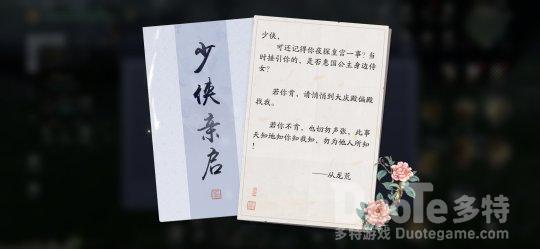 少侠亲启
少侠，
可还记得你夜探皇宫一事？当
时接引你的，是否惠国公主身边侍
女？
若你肯，请悄悄到大庆殿偏殿
找我。
若你不肯，也切勿声张，此事
天知地知你知我知，勿为他人所知
！
——从龙荒
DuoTe多特
多特游戏 Duotegame.com